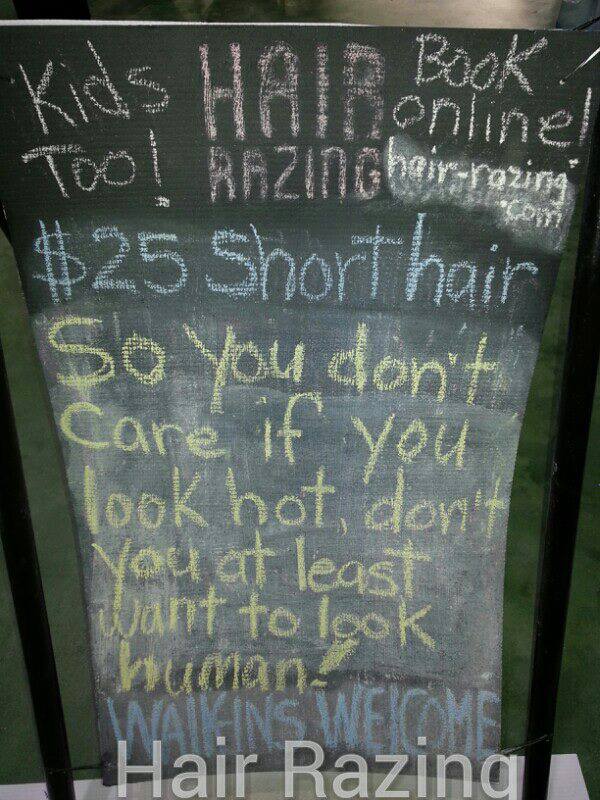 Kids Too!
HAIR RAZING
Book online!
hair-razing.com
$25 Short hair
So you don't
Care if you
look hot, don't
you at least
want to look
human!
WALK-INS WELCOME
Hair Razing